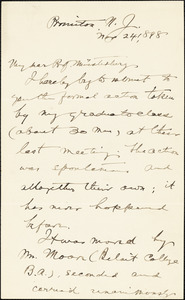 Princeton, N. J.
Nov 24, 1898
My dear Prof Münsterberg
I hereby beg to submit to
you the formal action taken
by my graduate class
(about 30 men) at their
last meeting; the action
was spontaneous and
altogether their own; it
has never happened
before.
It was moved by
Mr. Moore (Beloit College
B.A.), seconded and
carried unanimously